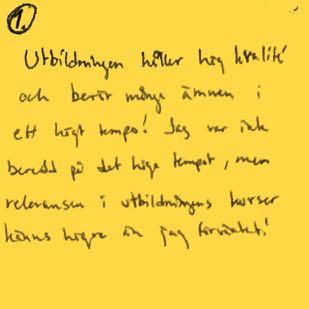 1.
Utbildningen håller hög kvalité
och berör många ämnen i
ett högt tempo! Jag var ink
beredd på det höga tempot, men
relevansen i utbildningens kurser
känns högre än jag förväntat!